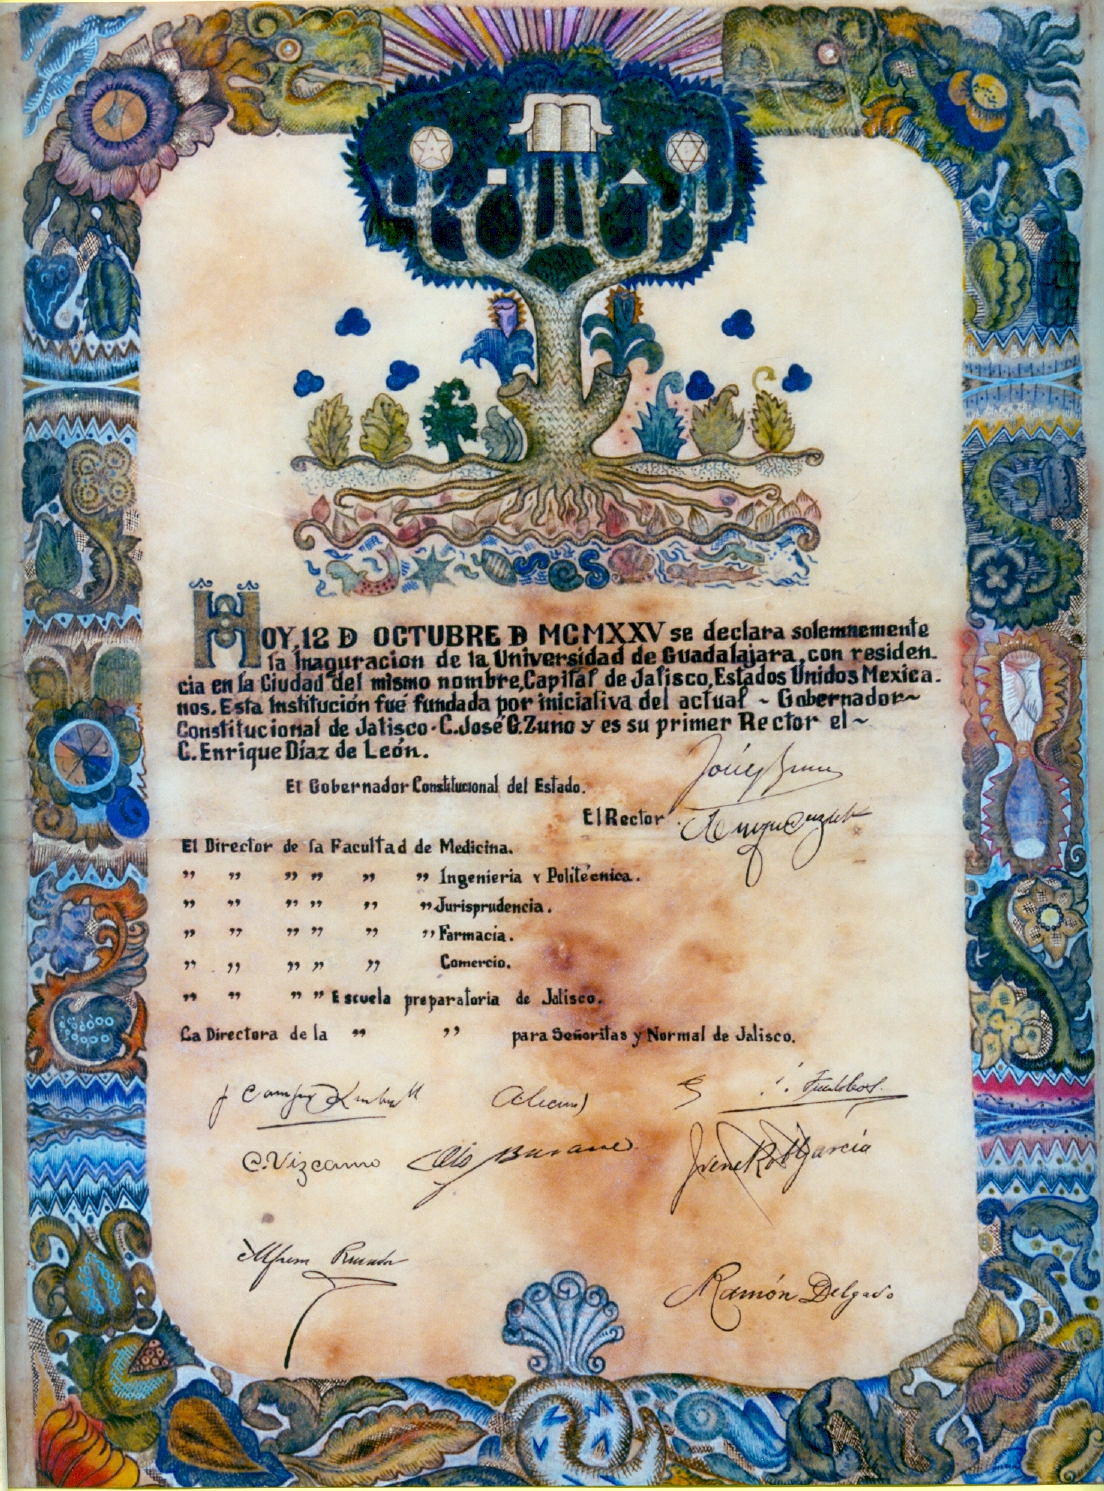 HOY, 12 D OCTUBRE D MCMXXV se declara solemnemente
la Inaguracion de la Universidad de Guadalajara, con residen-
cia en la Ciudad del mismo nombre, Capital de Jalisco, Estados Unidos Mexica-
nos. Esta Institución fué fundada por iniciativa del actual ~ Gobernador ~
Constitucional de Jalisco · C. José G. Zuno y es su primer Rector el ~
C. Enrique Díaz de León.
El Gobernador Constitucional del Estado.
El Rector
El Director de la Facultad de Medicina.
" " " " " " Ingenieria y Politécnica.
" " " " " " Jurisprudencia.
" " " " " " Farmacia.
" " " " " Comercio.
" " " " Escuela preparatoria de Jalisco.
La Directora de la " " para Señoritas y Normal de Jalisco.
C. Vizcamo
Irene García
Ramón Delgado